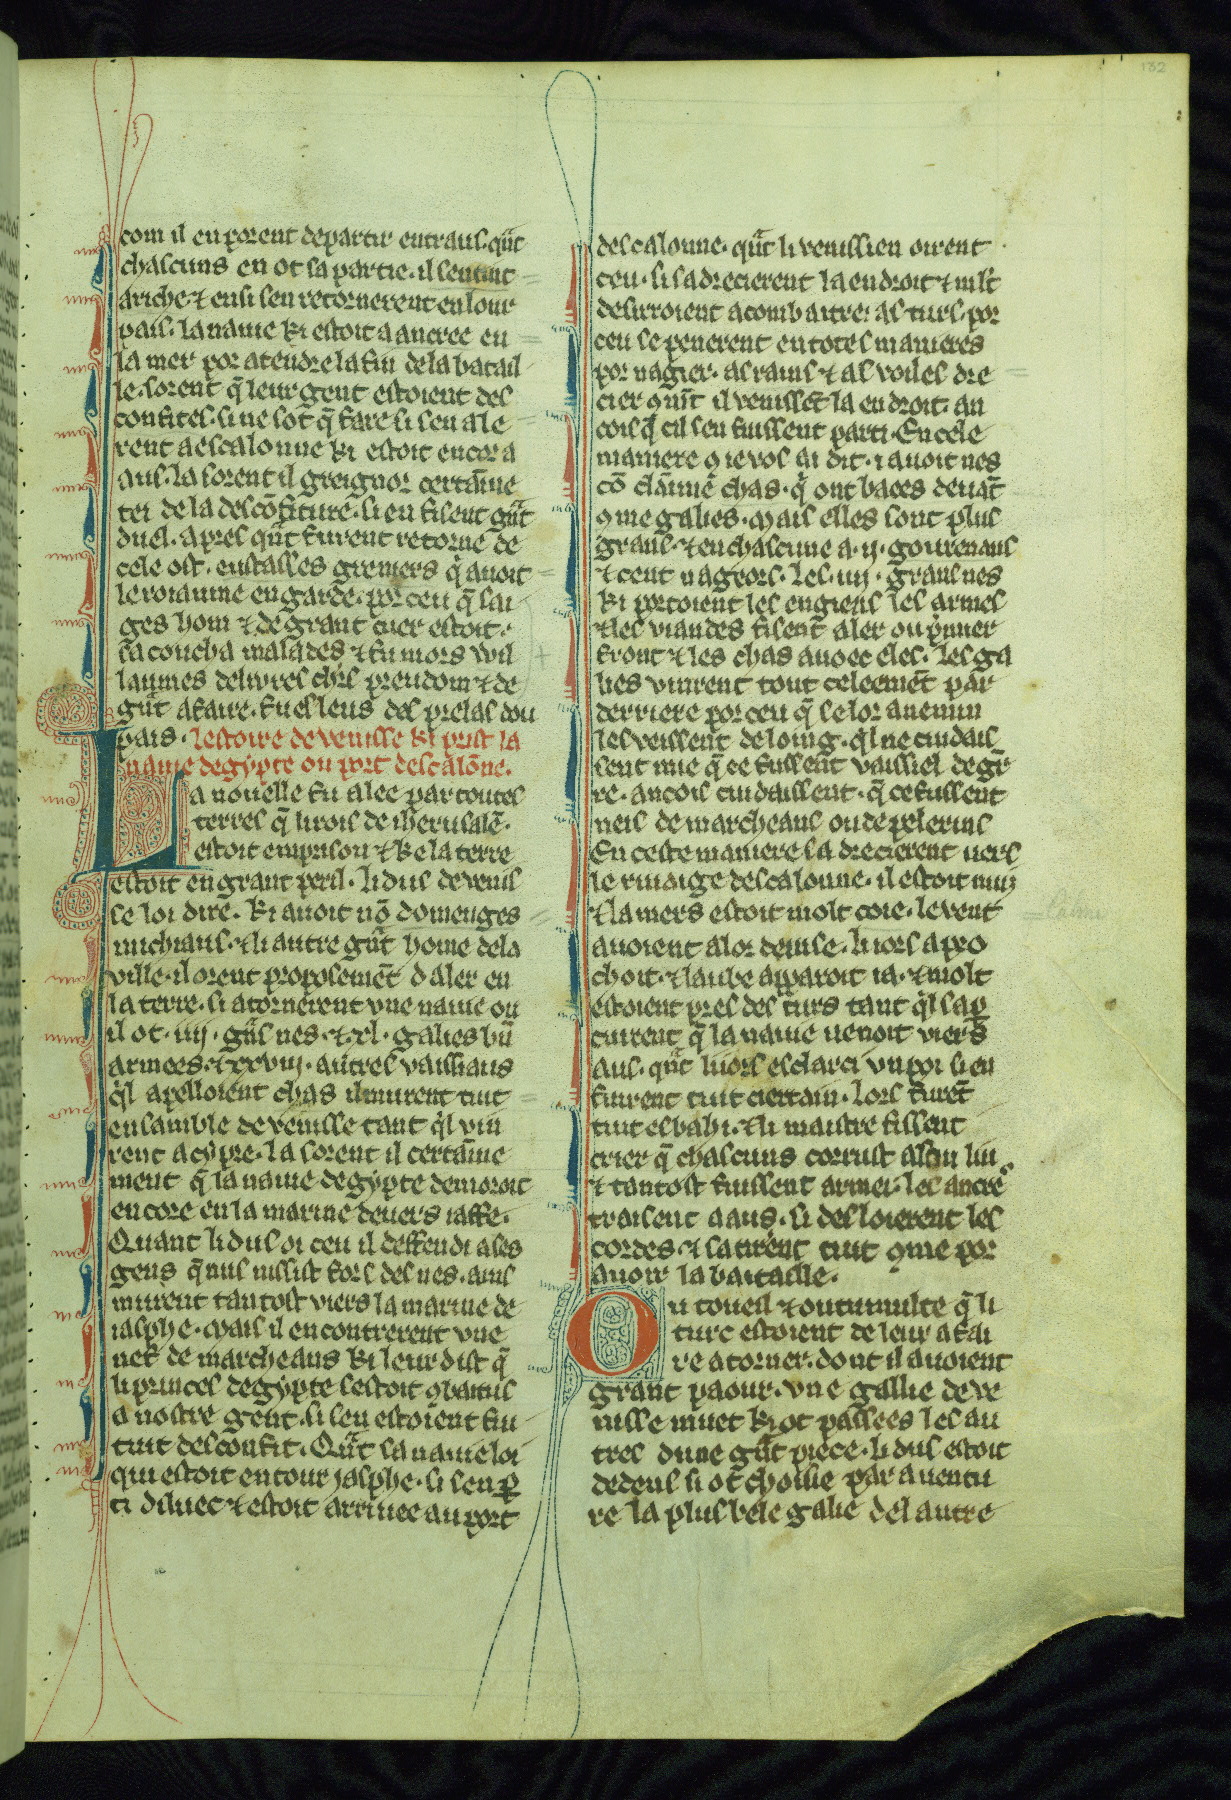 132
com il en porent departir entraus. qñt
chascuns en ot sa partie. il sentint
a riche. ⁊ ensi sen retornerent en lour
pais. la nauie ki estoit a ancree en
la mer por atendre la fin de la batail
le. sorent q̄ leur gent estoient des
confites. si ne sot q̄ faire si sen ale
rent a escalonne ki estoit encor a
aus. la sorent il greignor certaine
tei de la descōfiture. si en fisent gñt
duel. apres qñt furent retorne de
cele ost. eustasses greniers q̄ auoit
le roiaume en garde. por ceu q̄ sai
ges hom ⁊ de grant cuer estoit.
sa coucha malades ⁊ fu mors wil
laumes deliures chrs preudom ⁊ de
gñt afaire. fu esleus des prelas dou
pais. lestoire de venisse ki prist la
nauie degypte ou port descalōne.
La nouelle fu alee par toutes
terres q̄ li rois de iherusalē.
estoit emprison ⁊ ke la terre
estoit en grant peril. li dus de venis
se loi dire. ki auoit nō domenges
michiaus. ⁊ li autre gñt home de la
ville. il orent proposemēt daler en
la terre. si atornerent vne nauie ou
il ot .iiij. gñs nes. ⁊ .xl. galies bñ
armees. ⁊ xxviij. autres vaissiaus
q̓l apelloient chas il murent tuit
ensamble de venisse tant q̓l vin
rent a cypre. la sorent il certaine
ment q̄ la nauie degypte demoroit
encore en la marine deuers iaffe.
Quant li dus oi ceu il deffendi a ses
gens q̄ nus nissist fors des nes. ains
murent tantost viers la marine de
iasphe. mais il encontrerent vne
nef de marcheans ki leur dist q̄
li princes degypte sestoit ꝯbatus
a nostre gent. si sen estoient fui
tuit desconfit. Qñt sa nauie loi
qui estoit entour jasphe. si sen ꝑ
ti diluec ⁊ estoit arriuee au port
descalonne. qñt li venissien oirent
ceu. si sadrecierent la endroit ⁊ mlt
desirroient a combatre. as turs. por
ceu se penerent en totes manieres
por nagier. as rains ⁊ as voiles dre
cier ꝯnit il venissēt la endroit. an
cois q̄ cil sen fuissent parti. En cele
maniere ꝯ ie vos ai dit. i auoit nes
cō claime chas. q̓ ont baees deuāt
ꝯme galies. mais elles sont plus
grans. ⁊ en chascune a .ij. gouernaus
⁊ cent nageors. Les .iiij. grans nes
ki portoient les engiens les armes
⁊ les viandes fisent aler ou p̓mier
front ⁊ les chas auoec eles. les ga
lies vinrent tout celeemēt par
derriere por ceu q̄ se lor anemin
les veissent de loing. q̓l ne cuidais
sent mie q̄ ce fussent vaissiel de gñ
re. ancois cuidaissent. q̄ ce fussent
neis de marcheans ou de pelerins
En ceste maniere sa drecierent uers
le riuaige descalonne. il estoit nuiz
⁊ la mers estoit molt coie. le vent
auoient a lor deuise. li iors a pro
choit. ⁊ laube apparoit ia. ⁊ molt
estoient pres des turs tant q̓l sap
curent q̄ la nauie uenoit viers
aus. qñt li iors esclarci vn poi si en
furent tuit ciertain. lors furēt
tuit esbahi. ⁊ li maistre fissent
crier q̄ chascuns corrust as au lui
⁊ tantost fuissent armei. les ancre
traisent a aus. si desloierent les
cordes. ⁊ satirēt tuit ꝯme por
auoir la bataille.
Ou toueil ⁊ ou tumulte q̄ li
turc estoient de leur afai
re atorner. dont il auoient
grant paour. vne gallie de ve
nisse muet ki ot passees les au
tres dune gñt piece. li dus estoit
dedens si ot choisie par auentu
re la plus bele galie del autre